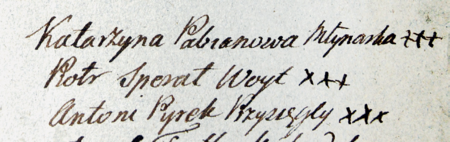 Katarzyna Pabianowa Młynarka +++
Piotr Sperat Woyt xxx
Antoni Pyrek Przysięgły xxx